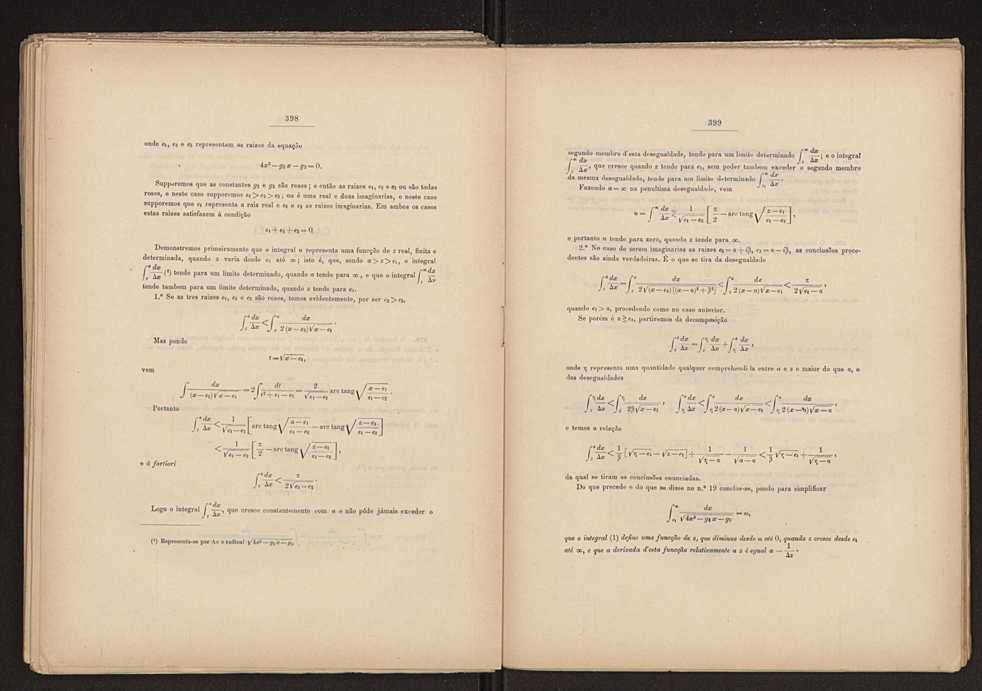 398
onde e₁, e₂ e e₃ representam as raizes da equação
4x³ − g₂x − g₃ = 0.
Supporemos que as constantes g₂ e g₃ são reaes; e então as raizes e₁, e₂ e e₃ ou são todas
reaes, e neste caso supporemos e₁ > e₂ > e₃; ou é uma real e duas imaginarias, e neste caso
supporemos que e₁ representa a raiz real e e₂ e e₃ as raizes imaginarias. Em ambos os casos
estas raizes satisfazem à condição
e₁ + e₂ + e₃ = 0.
Demonstremos primeiramente que o integral u representa uma funcção de z real, finita e
determinada, quando z varia desde e₁ até ∞; isto é, que, sendo a > z > e₁, o integral
∫_z^a dx/Δx (¹) tende para um limite determinado, quando a tende para ∞, e que o integral ∫_z^a dx/Δx
tende tambem para um limite determinado, quando z tende para e₁.
1.º Se as tres raizes e₁, e₂ e e₃ são reaes, temos evidentemente, por ser e₂ > e₃,
∫_z^a dx/Δx < ∫_z^a dx/(2(x − e₂)√(x − e₁)).
Mas pondo
t = √(x − e₁),
vem
∫ dx/((x − e₂)√(x − e₁)) = 2∫ dt/(t² + e₁ − e₂) = 2/√(e₁ − e₂) arc tang √((x − e₁)/(e₁ − e₂)).
Portanto
∫_z^a dx/Δx < 1/√(e₁ − e₂) [arc tang √((a − e₁)/(e₁ − e₂)) − arc tang √((z − e₁)/(e₁ − e₂))]
< 1/√(e₁ − e₂) [π/2 − arc tang √((z − e₁)/(e₁ − e₂))],
e á fortiori
∫_z^a dx/Δx < π/(2√(e₁ − e₂)).
Logo o integral ∫_z^a dx/Δx, que cresce constantemente com a e não póde jámais exceder o
(¹) Representa-se por Δx o radical √(4x³ − g₂x − g₃
399
segundo membro d'esta desegualdade, tende para um limite determinado ∫_z^∞ dx/Δx; e o integral
∫_z^a dx/Δx, que cresce quando z tende para e₁, sem poder tambem exceder o segundo membro
da mesma desegualdade, tende para um limite determinado ∫_{e₁}^a dx/Δx.
Fazendo a = ∞ na penultima desegualdade, vem
u = ∫_z^∞ dx/Δx ≤ 1/√(e₁ − e₂) [π/2 − arc tang √((z − e₁)/(e₁ − e₂))],
e portanto u tende para zero, quando z tende para ∞.
2.º No caso de serem imaginarias as raizes e₂ = α + iβ, e₃ = α − iβ, as conclusões prece-
dentes são ainda verdadeiras. É o que se tira da desegualdade
∫_z^a dx/Δx = ∫_z^a dx/(2√((x − e₁)[(x − α)² + β²])) < ∫_z^a dx/(2(x − α)√(x − e₁)) < π/(2√(e₁ − α)),
quando e₁ > α, procedendo como no caso anterior.
Se porém é α ≥ e₁, partiremos da decomposição
∫_z^a dx/Δx = ∫_z^η dx/Δx + ∫_η^a dx/Δx,
onde η representa uma quantidade qualquer comprehendida entre a e z e maior do que α, e
das desegualdades
∫_z^η dx/Δx < ∫_z^η dx/(2β√(x − e₁)), ∫_η^a dx/Δx < ∫_η^a dx/(2(x − α)√(x − e₁)) < ∫_η^a dx/(2(x − α)√(x − α)),
e temos a relação
∫_z^a dx/Δx < 1/β [√(η − e₁) − √(z − e₁)] + 1/√(η − α) − 1/√(a − α) < 1/β √(η − e₁) + 1/√(η − α),
da qual se tiram as conclusões enunciadas.
Do que precede e do que se disse no n.º 19 conclue-se, pondo para simplificar
∫_{e₁}^∞ dx/√(4x³ − g₂x − g₃) = ω,
que o integral (1) define uma funcção de z, que diminue desde ω até 0, quando z cresce desde e₁
até ∞, e que a derivada d'esta funcção relativamente a z é egual a − 1/Δz.